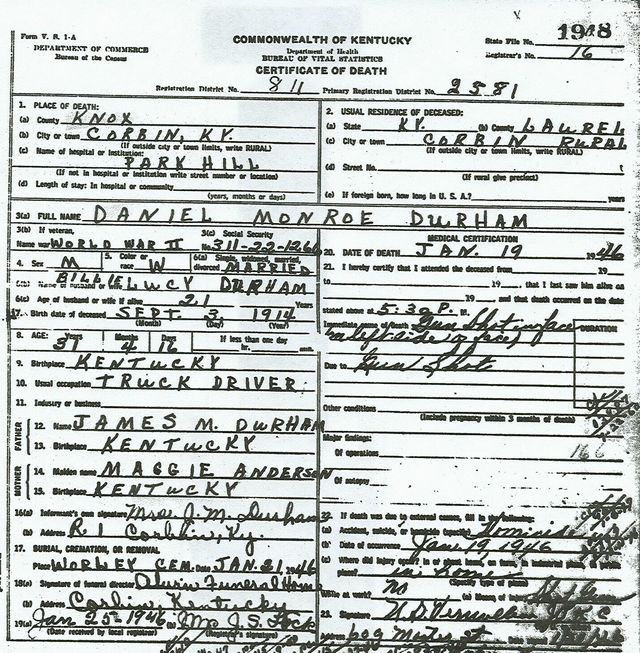 Form V. S. 1-A
DEPARTMENT OF COMMERCE
Bureau of the Census
COMMONWEALTH OF KENTUCKY
Department of Health
BUREAU OF VITAL STATISTICS
CERTIFICATE OF DEATH
State File No. 1948
Registrar's No. 16
Registration District No. 811 Primary Registration District No. 2581
1. PLACE OF DEATH:
(a) County KNOX
(b) City or town CORBIN, KY.
(If outside city or town limits, write RURAL)
(c) Name of hospital or institution:
PARK HILL
(If not in hospital or institution write street number or location)
(d) Length of stay: In hospital or community
(years, months or days)
2. USUAL RESIDENCE OF DECEASED:
(a) State KY. (b) County LAUREL
(c) City or town CORBIN RURAL
(If outside city or town limits, write RURAL)
(d) Street No.
(If rural give precinct)
(e) If foreign born, how long in U. S. A.? years
3(a) FULL NAME DANIEL MONROE DURHAM
3(b) If veteran,
Name war WORLD WAR II
3(c) Social Security
No. 311-22-1266
4. Sex M
5. Color or race W
6(a) Single, widowed, married, divorced MARRIED
6(b) Name of husband or wife BILLIE LUCY DURHAM
6(c) Age of husband or wife if alive 21 Years
7. Birth date of deceased SEPT. 3, 1914
(Month) (Day) (Year)
8. AGE: Years 31 Months 4 Days 16 If less than one day
hr. min.
9. Birthplace KENTUCKY
10. Usual occupation TRUCK DRIVER
11. Industry or business
FATHER
12. Name JAMES M. DURHAM
13. Birthplace KENTUCKY
MOTHER
14. Maiden name MAGGIE ANDERSON
15. Birthplace KENTUCKY
16(a) Informant's own signature Mrs. J. M. Durham
(b) Address R 1 Corbin, Ky.
17. BURIAL, CREMATION, OR REMOVAL
Place WORLEY CEM. Date JAN. 21, 1946
18(a) Signature of funeral director Funeral Home
(b) Address Corbin, Kentucky
19(a) Jan 25-1946 (b) Mrs J. S.
(Date received by local registrar) (Registrar's signature)
MEDICAL CERTIFICATION
20. DATE OF DEATH JAN. 19 1946
21. I hereby certify that I attended the deceased from 19
19 , that I last saw him alive on
19 , and that death occurred on the date
stated above at 5:30 P. M.
Immediate cause of death Gun Shot in face
in left side of face)
DURATION
Due to Gun Shots
Other conditions
(Include pregnancy within 3 months of death)
Major findings:
Of operations 166
Of autopsy
22. If death was due to external causes, fill in the following:
(a) Accident, suicide, or homicide (specify) Homicide
(b) Date of occurrence Jan 19, 1946
(c) Where did injury occur? in or about home, on farm, in industrial place, in public
place? in Home
(Specify type of place)
While at work? no (e) Means of injury
23. Signature
Address